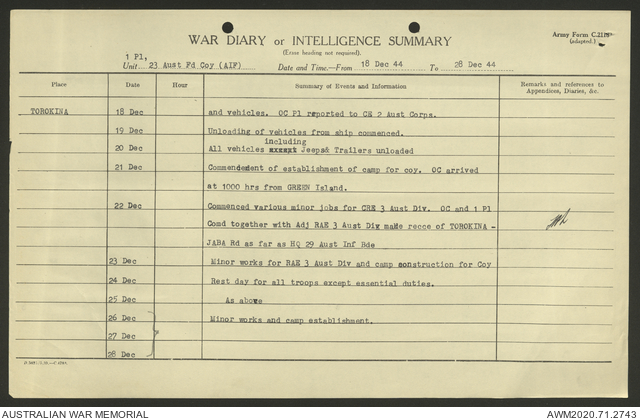 WAR DIARY or INTELLIGENCE SUMMARY
Army Form C.2118
(adapted.)
(Erase heading not required).
1 Pl,
Unit 23 Aust Fd Coy (AIF) Date and Time.—From 18 Dec 44 To 28 Dec 44
Place Date Hour Summary of Events and Information Remarks and references to Appendices, Diaries, &c.
TOROKINA 18 Dec and vehicles. OC Pl reported to CE 2 Aust Corps.
19 Dec Unloading of vehicles from ship commenced.
including
20 Dec All vehicles except Jeeps& Trailers unloaded
21 Dec Commendement of establishment of camp for coy. OC arrived
at 1000 hrs from GREEN Island.
22 Dec Commenced various minor jobs for CRE 3 Aust Div. OC and 1 Pl
Comd together with Adj RAE 3 Aust Div made recce of TOROKINA -
JABA Rd as far as HQ 29 Aust Inf Bde
23 Dec Minor works for RAE 3 Aust Div and camp construction for Coy
24 Dec Rest day for all troops except essential duties.
25 Dec As above
26 Dec Minor works and camp establishment.
27 Dec
28 Dec
AUSTRALIAN WAR MEMORIAL AWM2020.71.2743